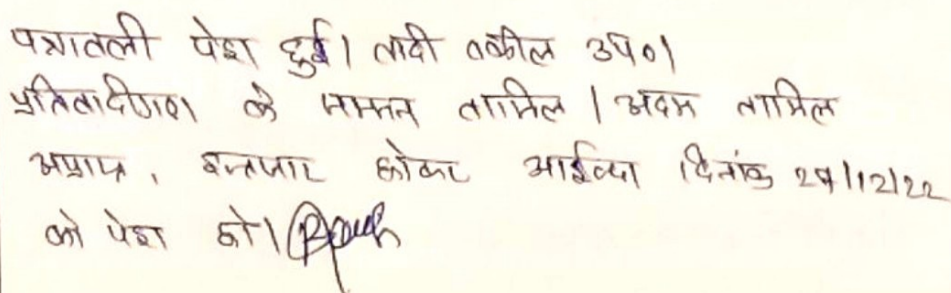 पत्रावली पेश हुई। वादी वकील उप०।
प्रतिवादीगण के सम्मन तामिल / अदम तामिल
अप्राप्त, इन्तजार होकर आईन्दा दिनांक 27/12/22
को पेश हो।